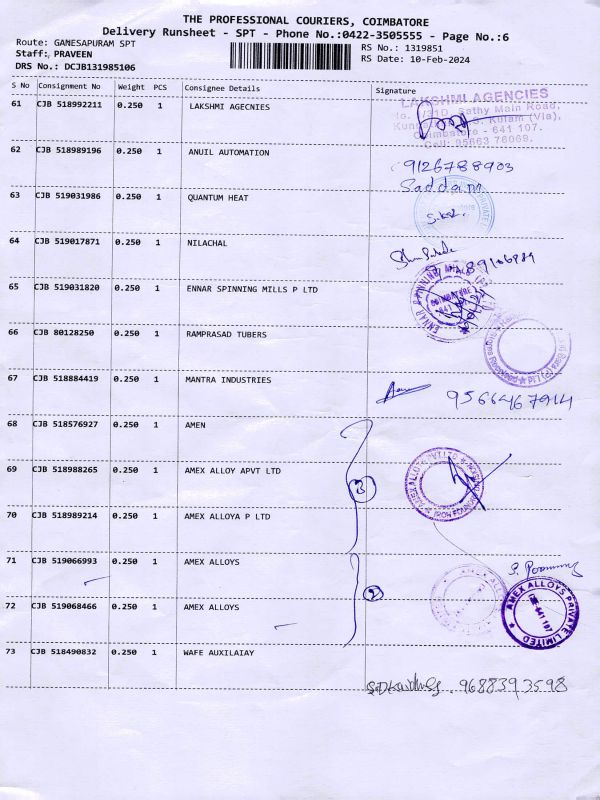 THE PROFESSIONAL COURIERS, COIMBATORE
Delivery Runsheet - SPT - Phone No.:0422-3505555 - Page No.:6
Route: GANESAPURAM SPT
RS No.: 1319851
Staff: PRAVEEN
RS Date: 10-Feb-2024
DRS No.: DCJB131985106
S No Consignment No Weight PCS Consignee Details Signature
61 CJB 518992211 0.250 1 LAKSHMI AGECNIES
LAKSHMI AGENCIES
Sathy Main Road,
Kulam (Via),
Coimbatore - 641 107.
Cell: 95663 76069.
62 CJB 518989196 0.250 1 ANUIL AUTOMATION
9126788903
Saddam
63 CJB 519031986 0.250 1 QUANTUM HEAT
64 CJB 519017871 0.250 1 NILACHAL
65 CJB 519031820 0.250 1 ENNAR SPINNING MILLS P LTD
ENNAR SPINNING MILLS
COIMBATORE
66 CJB 80128250 0.250 1 RAMPRASAD TUBERS
67 CJB 518884419 0.250 1 MANTRA INDUSTRIES
9566467914
68 CJB 518576927 0.250 1 AMEN
69 CJB 518988265 0.250 1 AMEX ALLOY APVT LTD
3
AMEX ALLOYS PVT LTD
IRON FOUNDRY
70 CJB 518989214 0.250 1 AMEX ALLOYA P LTD
71 CJB 519066993 0.250 1 AMEX ALLOYS
2
AMEX ALLOYS PRIVATE LIMITED
CBE-641 107
72 CJB 519068466 0.250 1 AMEX ALLOYS
73 CJB 518490832 0.250 1 WAFE AUXILAIAY
9688393598